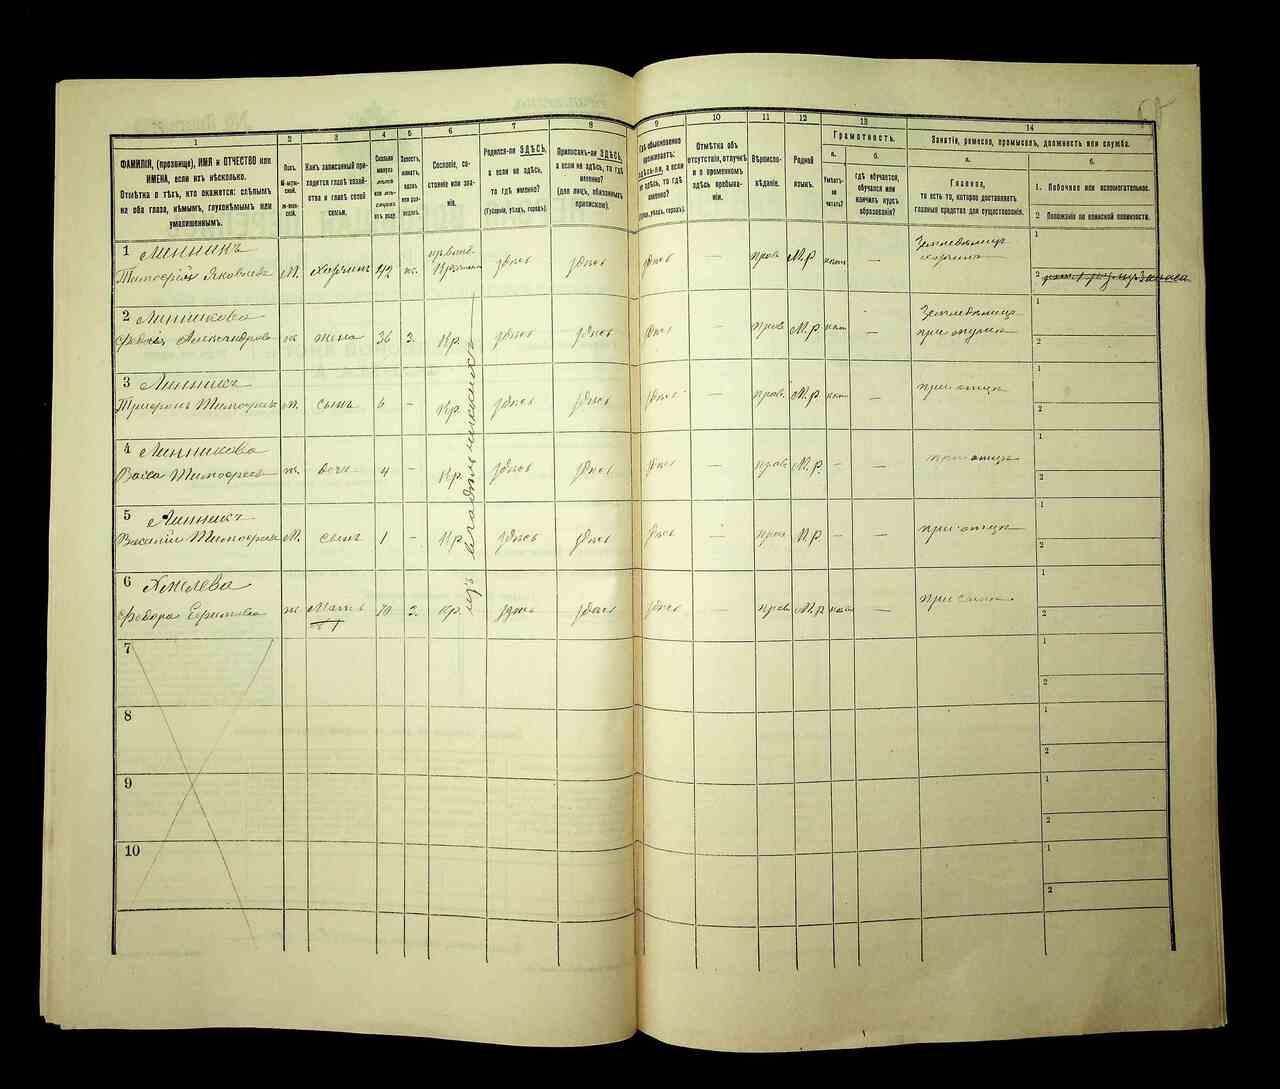 1 2 3 4 5 6 7 8 9 10 11 12 13 14
ФАМИЛІЯ, (прозвище), ИМЯ и ОТЧЕСТВО или
ИМЕНА, если ихъ нѣсколько.
Отмѣтка о тѣхъ, кто окажется: слѣпымъ
на оба глаза, нѣмымъ, глухонѣмымъ или
умалишеннымъ.
Полъ.
М-муж-
ской.
Ж-жен-
скій.
Какъ записанный при-
ходится главѣ хозяй-
ства и главѣ своей
семьи.
Сколько
минуло
лѣтъ
или мѣ-
сяцевъ
отъ роду.
Холостъ,
женатъ,
вдовъ
или раз-
веденъ.
Сословіе, со-
стояніе или зва-
ніе.
Родился-ли ЗДѢСЬ,
а если не здѣсь,
то гдѣ именно?
(Губернія, уѣздъ, городъ).
Приписанъ-ли ЗДѢСЬ,
а если не здѣсь, то гдѣ
именно?
(для лицъ, обязанныхъ
припискою).
Гдѣ обыкновенно
проживаетъ:
здѣсь-ли, а если
не здѣсь, то гдѣ
именно?
(Губ., уѣздъ, городъ).
Отмѣтка объ
отсутствіи, отлучкѣ
и о временномъ
здѣсь пребыва-
ніи.
Вѣроиспо-
вѣданіе.
Родной
языкъ.
Грамотность.
а.
Умѣетъ-
ли
читать?
б.
гдѣ обучается,
обучался или
кончилъ курсъ
образованія?
Занятіе, ремесло, промыселъ, должность или служба.
а.
Главное,
то есть то, которое доставляетъ
главныя средства для существованія.
б.
1. Побочное или вспомогательное.
2 Положеніе по воинской повинности.
1 Линникъ
Тимофей Яковлевъ М. Хозяинъ 42 ж. здѣсь здѣсь здѣсь — прав М.р нѣт — Земледѣлец
хозяинъ
1
2
2 Линникова
Александрова ж жена 36 З. Кр. здѣсь здѣсь здѣсь — прав М.р нѣт — Земледѣлица
при мужѣ
1
2
3 Линникъ
Трифонъ Тимофеевъ М. сынъ 6 - Кр. здѣсь здѣсь здѣсь — прав. М.р нѣт — при отцѣ
1
2
4 Линникова
Тимофеева ж. дочь 4 - Кр. здѣсь здѣсь здѣсь — прав М.р. — — при отцѣ
1
2
5 Линникъ
Василій Тимофеевъ М. сынъ 1 - Кр. здѣсь здѣсь здѣсь — прав М.р. — — при отцѣ
1
2
изъ владѣльческихъ
6 Хмелева
Ефимовна ж Мать 70 Кр. здѣсь здѣсь здѣсь — прав М.р нѣт — при сынѣ
1
2
7
1
2
8
1
2
9
1
2
10
1
2